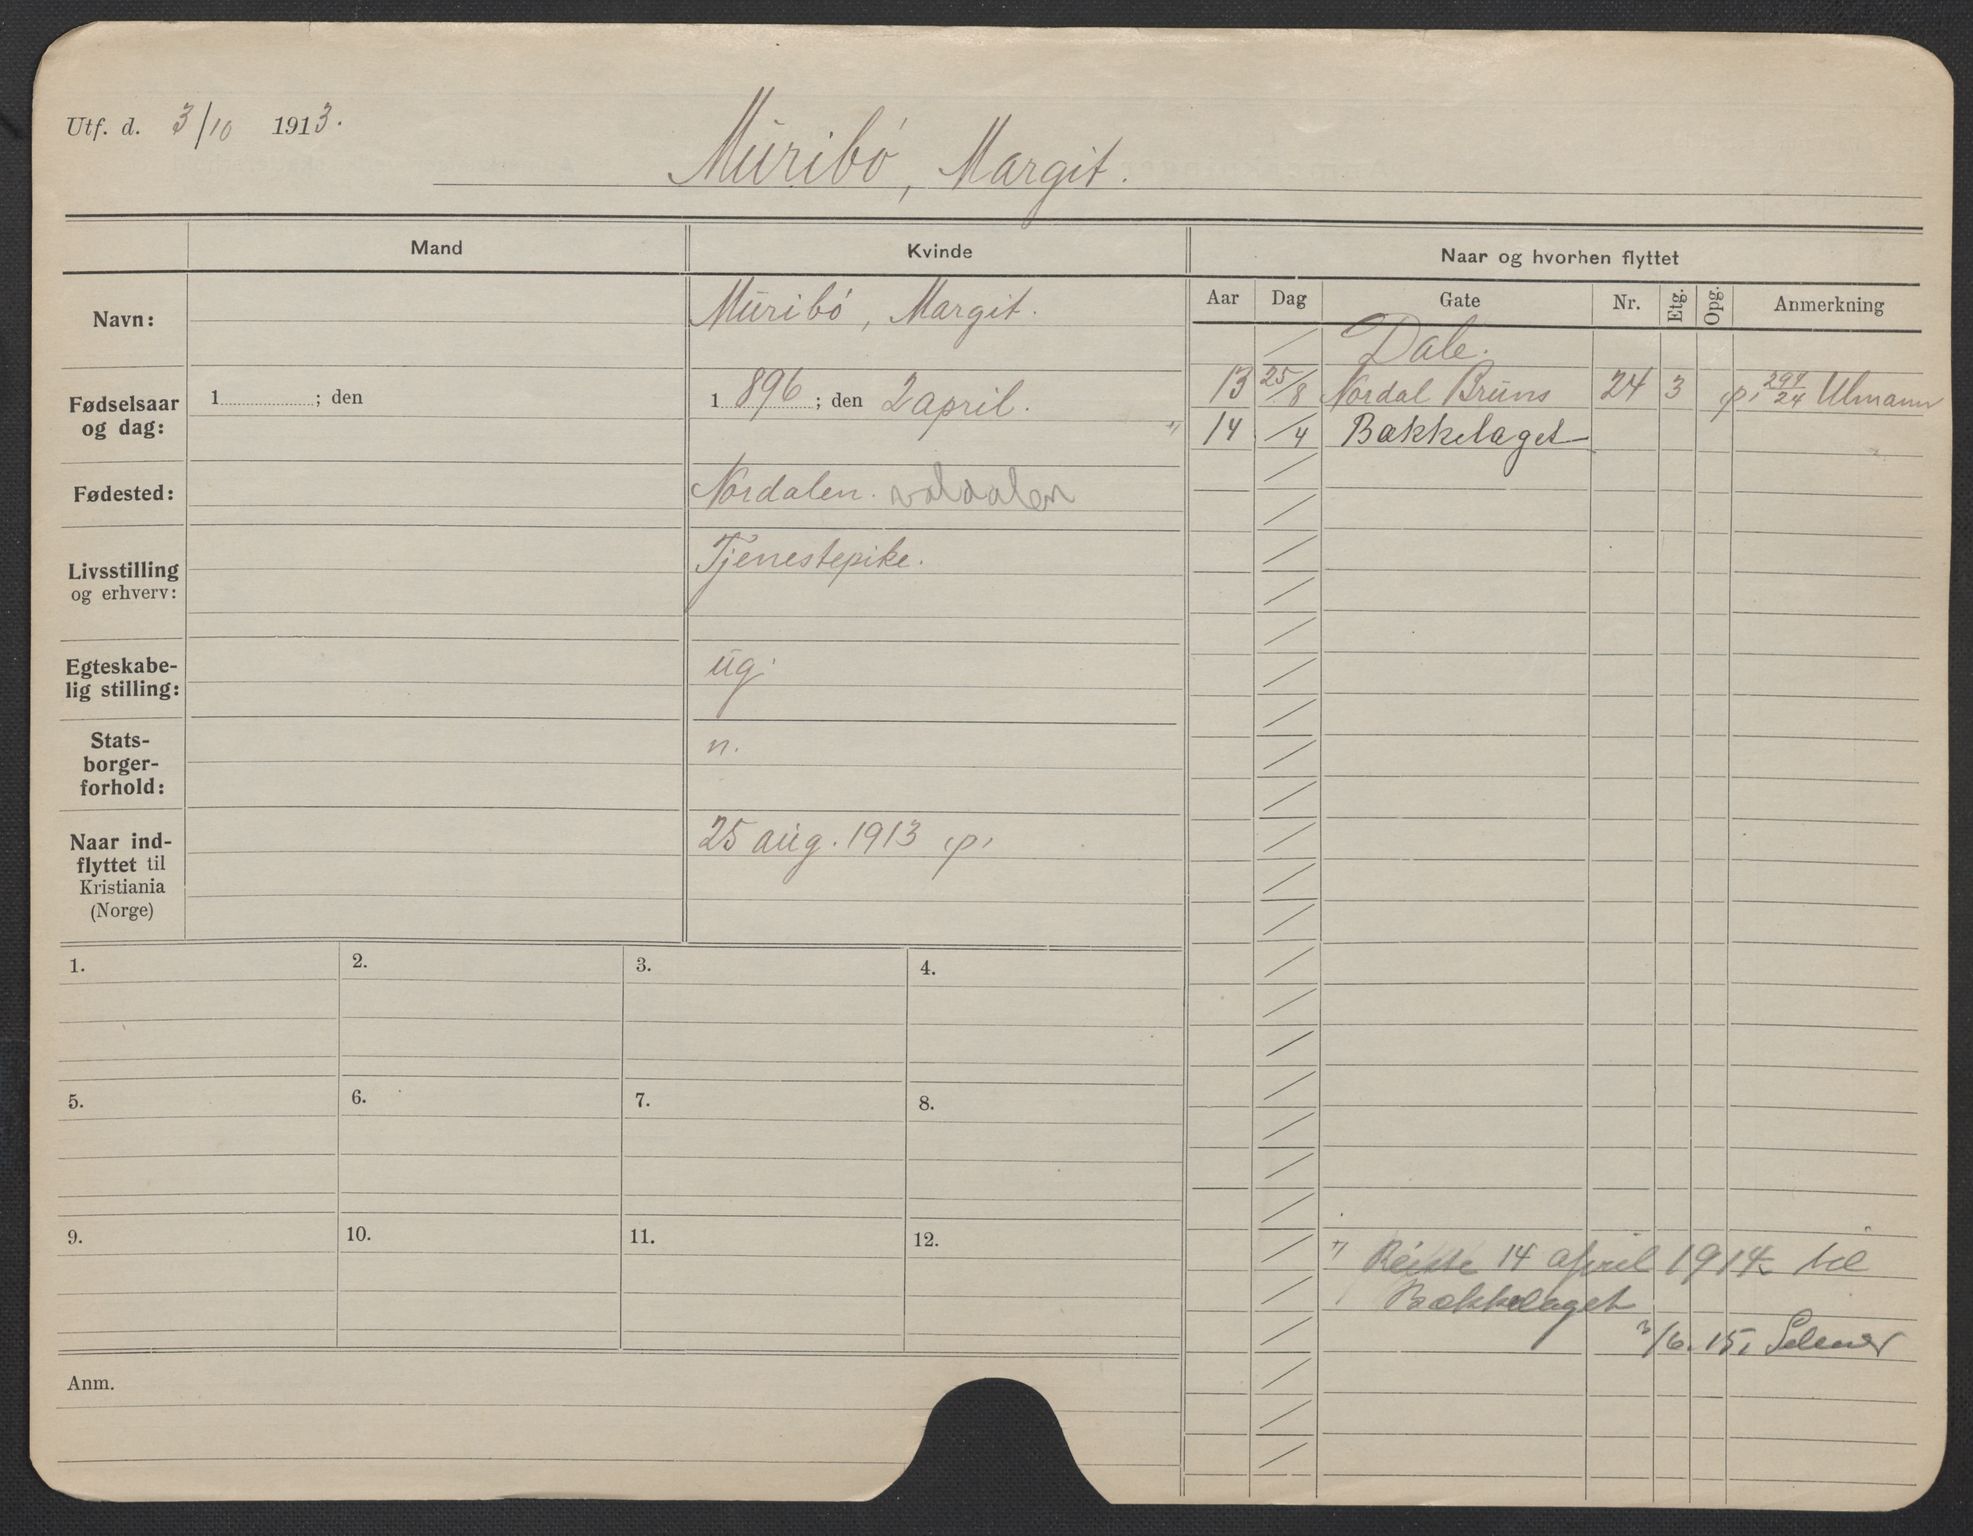 Utf. d. 3/10 1913.
Muribö, Margit.
Mand
Kvinde
Naar og hvorhen flyttet
Aar Dag Gate Nr. Etg. Opg. Anmerkning
Navn:
Muribö, Margit.
Fødselsaar og dag:
1 ; den
1 896 ; den 2 april.
Fødested:
Nordalen. valdalen
Livsstilling og erhverv:
Tjenestepike.
Egteskabe-
lig stilling:
ug.
Stats-
borger-
forhold:
n.
Naar ind-
flyttet til
Kristiania
(Norge)
25 aug. 1913 p.
Dale.
13 25/8 Nordal Bruns 24 3 p. 297/24 Ulmann
14 /4 Bækkelaget
1.
2.
3.
4.
5.
6.
7.
8.
9.
10.
11.
12.
Anm.
Reiste 14 april 1914 til
Bækkelaget
3/6. 15, Selmer